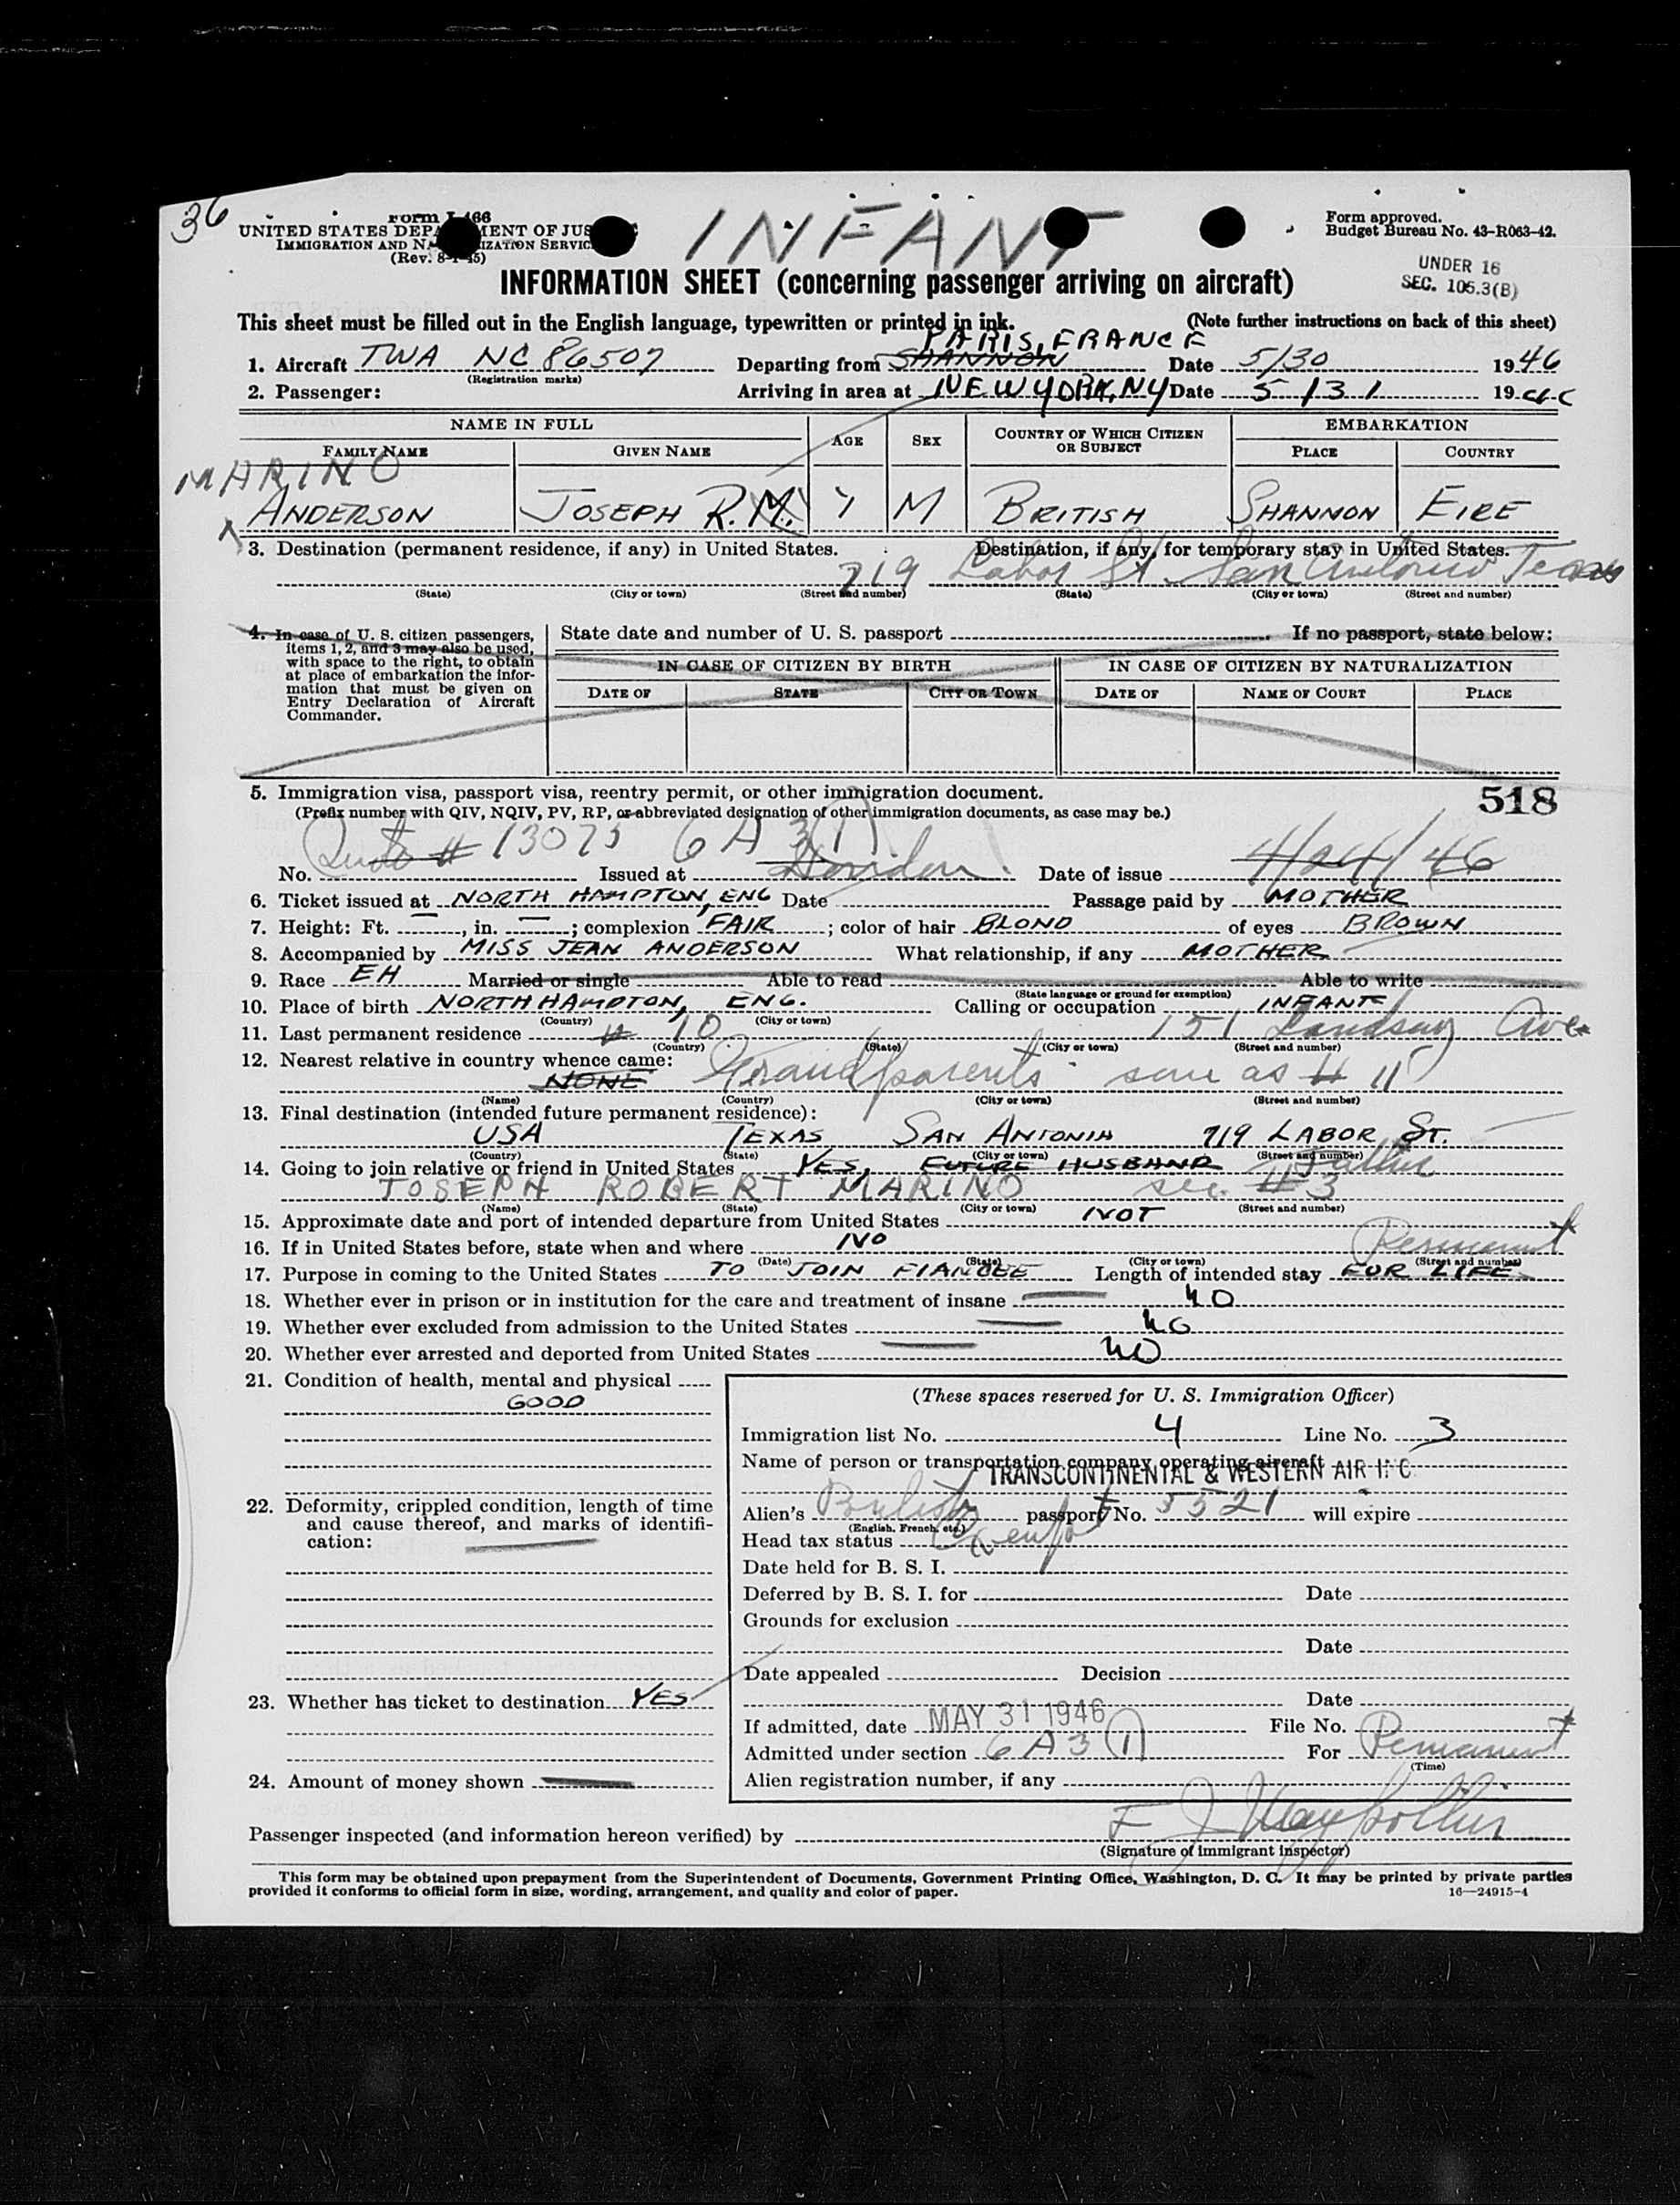 36
Form I-466
UNITED STATES DEPARTMENT OF JUSTICE
IMMIGRATION AND NATURALIZATION SERVICE
(Rev. 8-1-45)
INFANT
Form approved.
Budget Bureau No. 43-R063-42.
UNDER 16
SEC. 105.3(B)
INFORMATION SHEET (concerning passenger arriving on aircraft)
This sheet must be filled out in the English language, typewritten or printed in ink. (Note further instructions on back of this sheet)
PARIS, FRANCE
1. Aircraft TWA NC 86507 Departing from SHANNON Date 5/30 1946
(Registration marks)
2. Passenger: Arriving in area at NEW YORK, NY Date 5/31 19
NAME IN FULL AGE SEX COUNTRY OF WHICH CITIZEN OR SUBJECT EMBARKATION
FAMILY NAME GIVEN NAME PLACE COUNTRY
MARINO
X ANDERSON JOSEPH R. M. 1 M BRITISH SHANNON EIRE
3. Destination (permanent residence, if any) in United States. Destination, if any, for temporary stay in United States.
719 Labor St. San Antonio Texas
(State) (City or town) (Street and number) (State) (City or town) (Street and number)
4. In case of U. S. citizen passengers, items 1, 2, and 3 may also be used, with space to the right, to obtain at place of embarkation the information that must be given on Entry Declaration of Aircraft Commander.
State date and number of U. S. passport If no passport, state below:
IN CASE OF CITIZEN BY BIRTH IN CASE OF CITIZEN BY NATURALIZATION
DATE OF STATE CITY OR TOWN DATE OF NAME OF COURT PLACE
5. Immigration visa, passport visa, reentry permit, or other immigration document. 518
(Prefix number with QIV, NQIV, PV, RP, or abbreviated designation of other immigration documents, as case may be.)
Quota # 13075 6 A 3 (1)
No. Issued at London Date of issue 4/24/46
6. Ticket issued at NORTH HAMPTON, ENG Date Passage paid by MOTHER
7. Height: Ft. —, in. —; complexion FAIR; color of hair BLOND of eyes BROWN
8. Accompanied by MISS JEAN ANDERSON What relationship, if any MOTHER
9. Race EH Married or single Able to read Able to write
(State language or ground for exemption)
10. Place of birth NORTH HAMPTON, ENG. Calling or occupation INFANT
(Country) (City or town)
11. Last permanent residence # 10 151 Lindsay Ave
(Country) (State) (City or town) (Street and number)
12. Nearest relative in country whence came:
NONE Grandparents same as # 11
(Name) (Country) (City or town) (Street and number)
13. Final destination (intended future permanent residence):
USA TEXAS SAN ANTONIA 719 LABOR ST.
(Country) (State) (City or town) (Street and number)
14. Going to join relative or friend in United States YES, FUTURE HUSBAND Father
JOSEPH ROBERT MARINO see # 3
(Name) (State) (City or town) (Street and number)
15. Approximate date and port of intended departure from United States NOT
16. If in United States before, state when and where NO Permanent
(Date) (State) (City or town) (Street and number)
17. Purpose in coming to the United States TO JOIN FIANCEE Length of intended stay FOR LIFE
18. Whether ever in prison or in institution for the care and treatment of insane NO
19. Whether ever excluded from admission to the United States NO
20. Whether ever arrested and deported from United States NO
21. Condition of health, mental and physical
GOOD
22. Deformity, crippled condition, length of time and cause thereof, and marks of identification:
23. Whether has ticket to destination YES
24. Amount of money shown
(These spaces reserved for U. S. Immigration Officer)
Immigration list No. 4 Line No. 3
Name of person or transportation company operating aircraft
TRANSCONTINENTAL & WESTERN AIR INC.
Alien's British passport No. 5521 will expire
(English, French, etc.)
Head tax status Exempt
Date held for B. S. I.
Deferred by B. S. I. for Date
Grounds for exclusion
Date
Date appealed Decision
Date
If admitted, date MAY 31 1946 File No.
Admitted under section 6 A 3 (1) For Permanent
(Time)
Alien registration number, if any
Passenger inspected (and information hereon verified) by F J
(Signature of immigrant inspector)
This form may be obtained upon prepayment from the Superintendent of Documents, Government Printing Office, Washington, D. C. It may be printed by private parties
provided it conforms to official form in size, wording, arrangement, and quality and color of paper. 16—24915-4